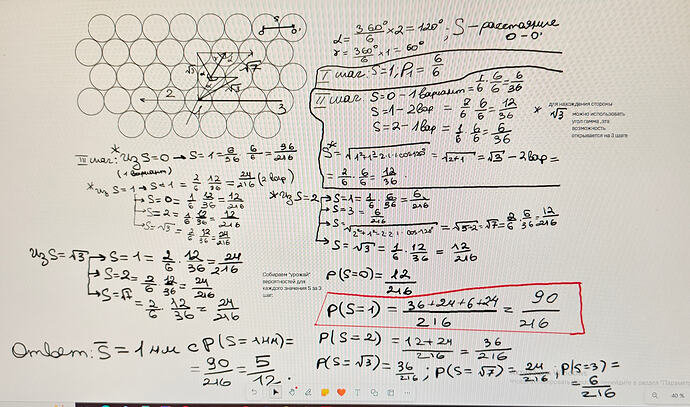 S
O O'
√3
√7
√3
α
2
1
3
α = 360°/6 × 2 = 120° ; S – расстояние
O – O'
γ = 360°/6 × 1 = 60°
I шаг: S=1; P₁ = 6/6
II шаг: S=0 – 1 вариант = 1/6 · 6/6 = 6/36
S=1 – 2 вар = 2/6 · 6/6 = 12/36
S=2 – 1 вар = 1/6 · 6/6 = 6/36
* S = √(1²+1²-2·1·1·cos120°) = √(2+1) = √3 – 2 вар =
= 2/6 · 6/6 = 12/36.
* для нахождения стороны
√3 можно использовать
угол гамма, эта
возможность
открывается на 3 шаге
III шаг: * из S=0 → S=1 = 6/36 · 6/6 = 36/216
(1 вариант)
* из S=1 → S=1 = 2/6 · 12/36 = 24/216 (2 вар)
→ S=0 = 1/6 · 12/36 = 12/216
→ S=2 = 1/6 · 12/36 = 12/216
→ S=√3 = 2/6 · 12/36 = 24/216
* из S=2 → S=1 = 1/6 · 6/36 = 6/216
→ S=3 = 6/216
→ S = √(2²+1²-2·2·1·cos120°) = √(5+2) = √7 = 2/6 · 6/36 = 12/216
→ S = √3 = 1/6 · 12/36 = 12/216
из S=√3 → S=1 = 2/6 · 12/36 = 24/216
→ S=2 = 2/6 · 12/36 = 24/216
→ S=√7 = 2/6 · 12/36 = 24/216
Собираем "урожай"
вероятностей для
каждого значения S за 3
шаг.
P(S=0) = 12/216
P(S=1) = (36+24+6+24)/216 = 90/216
P(S=2) = (12+24)/216 = 36/216
P(S=√3) = 36/216 ; P(S=√7) = 24/216 ; P(S=3) = 6/216
Ответ: S = 1 нм с P(S=1нм) =
= 90/216 = 5/12.
40 %